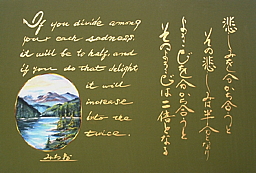 If you divide among
your each sadness,
it will be to half, and
if you do that delight
it will
increase
into the
twice.
悲しみを分から合うと
その悲しみは半分となり
よろこびを分から合うと
そのよろこびは二倍となる